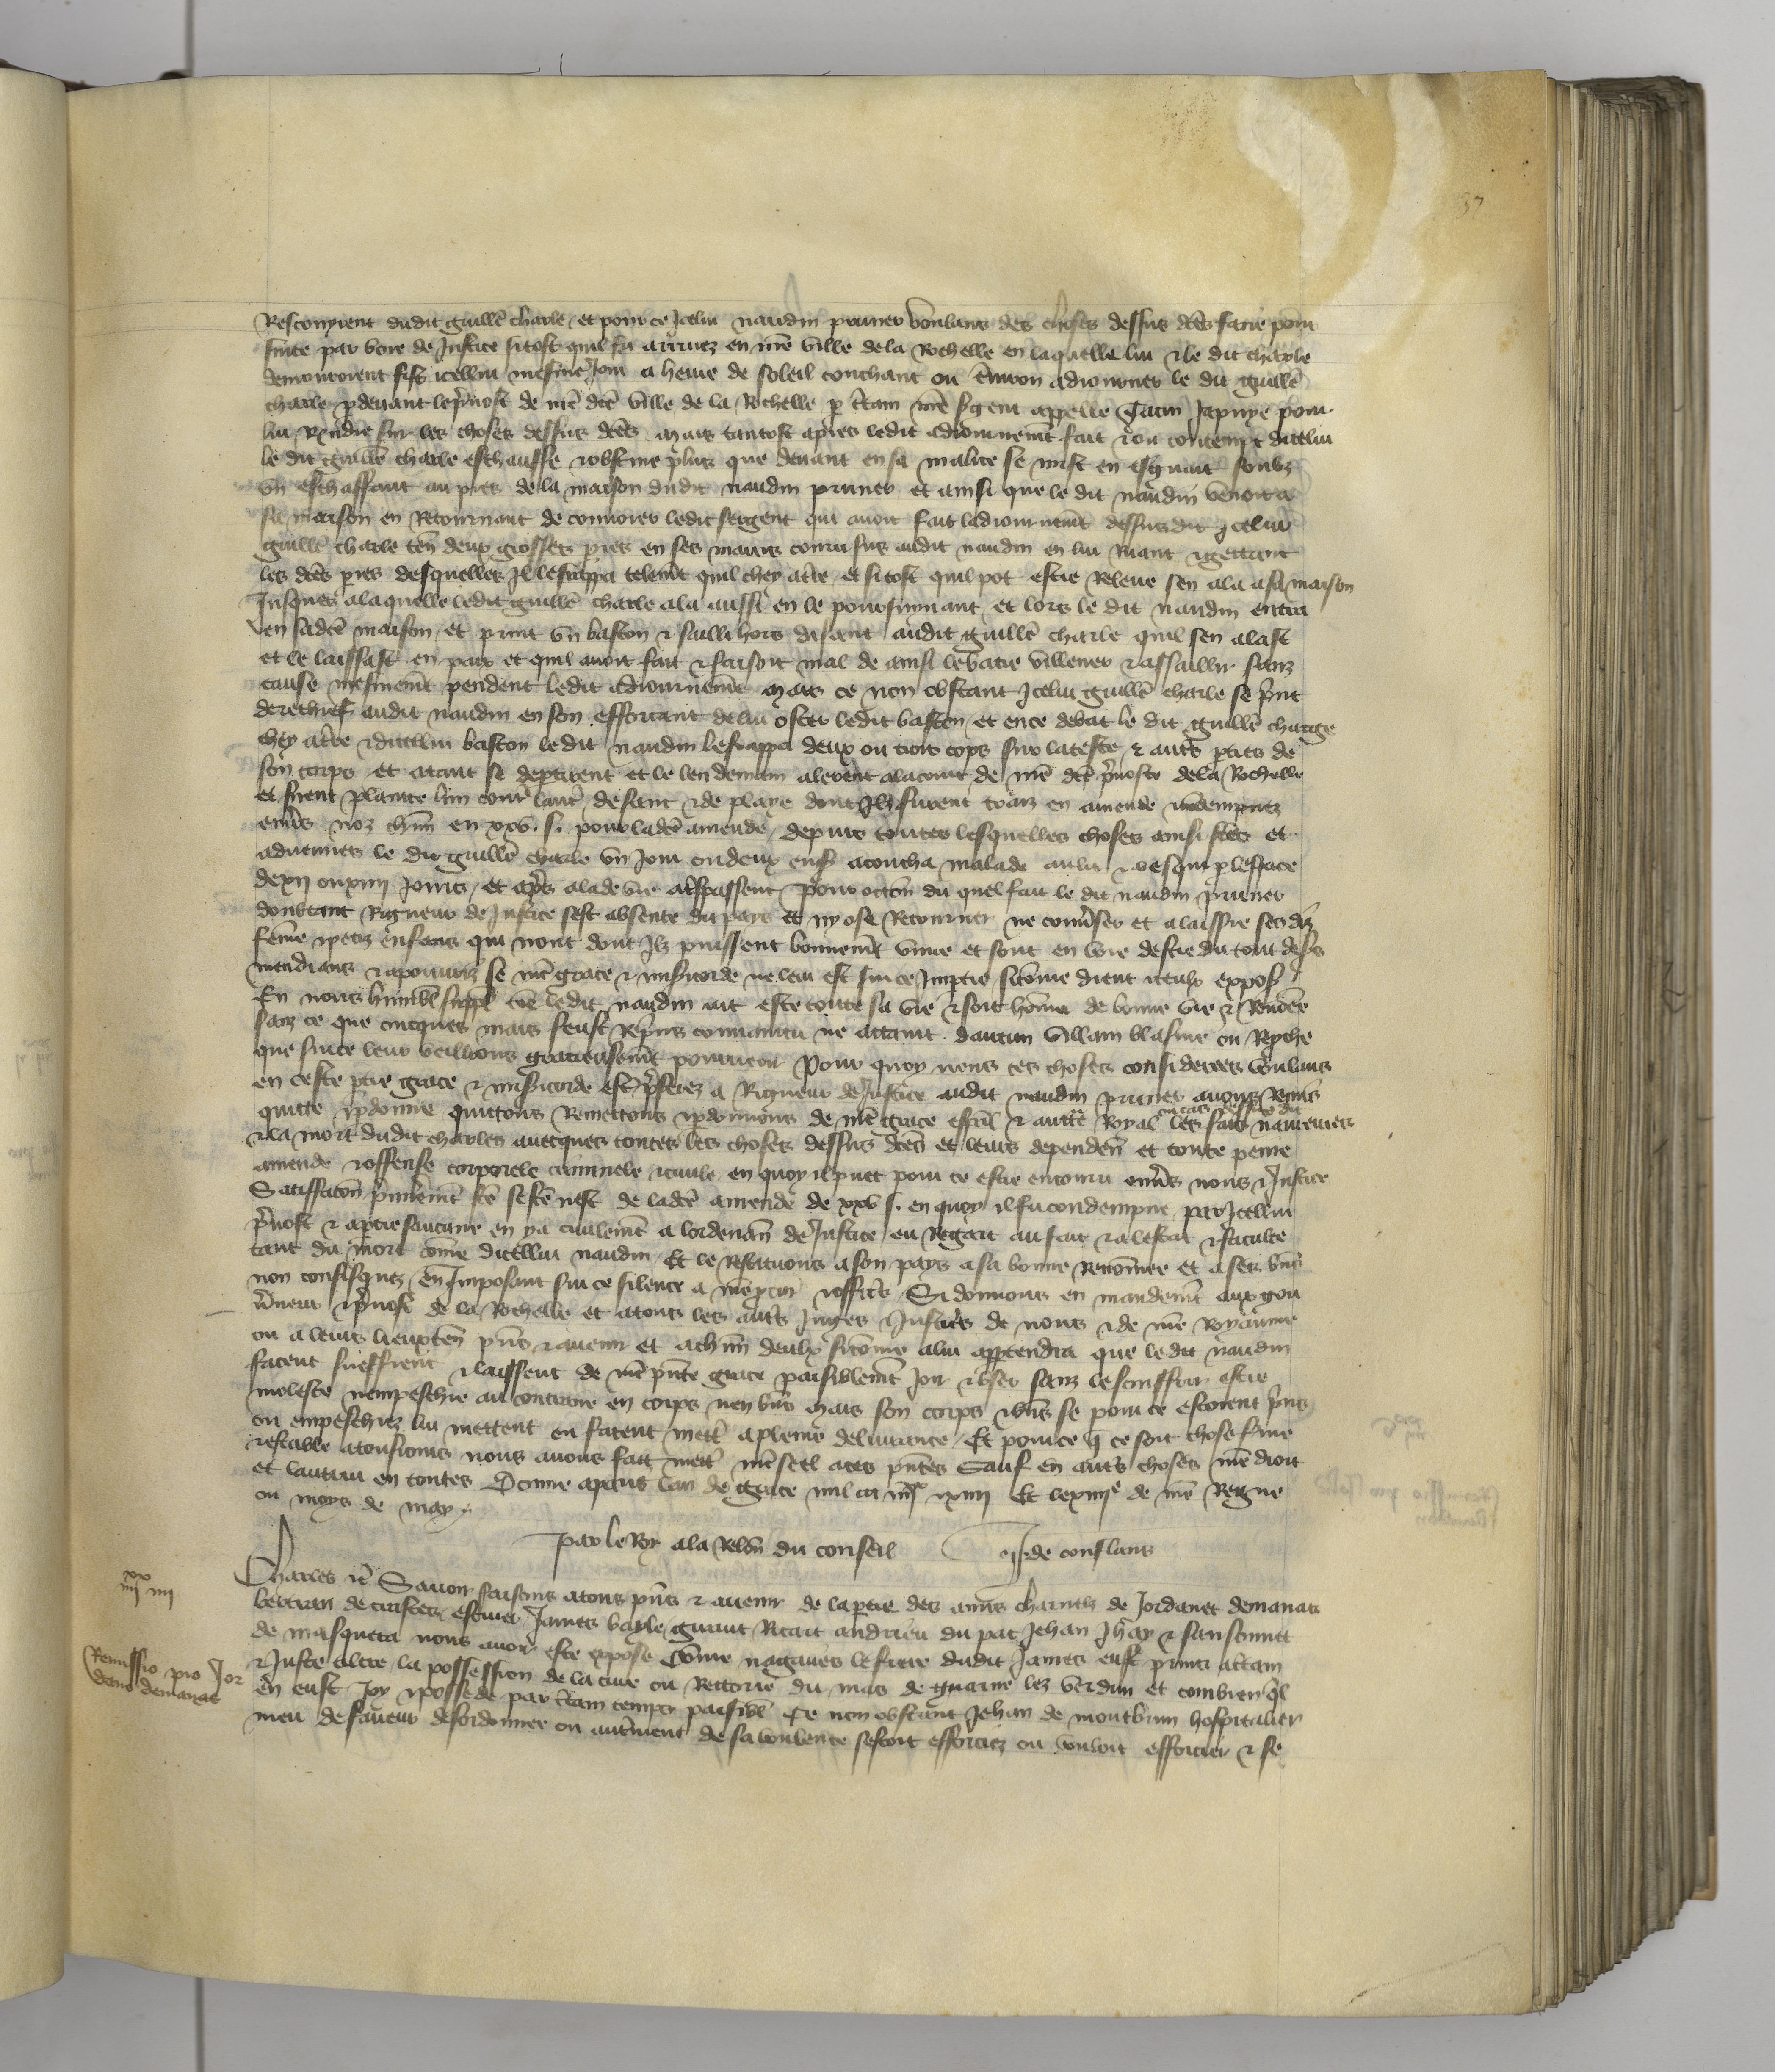 37
Rescouyrent dudit guillē charle et pour ce Icelui naudin prunes voulans des choses dessus dcēs faire pour
suite par voie de Justice sitost quil fu arrivez en nrē ville de la Rochelle en laquelle lui & le dit charle
demouroient fist icellui mesme Jour a heure de soleil couchant ou environ adiourner le dit guillē
charle pdevant le pvost de nrē dcē ville de la Rochelle p ctain nrē sgent appelle pour
lui Rendre sur les choses dessus dcēs mais tantost apres ledit adiournemēt fait & ou contempt dicelui
le dit guillē charle eschauffe & obstine plus que devant en sa malice se mist en esguait soubz
un eschaffaut au pres de la maison dudit naudin prunes et ainsi que le dit naudin venoit a
sa maison en Retournant de convoier ledit sergent qui avoit fait ladiournemēt dessusdit Icelui
guillē charle ten deux grosses pres en ses mains couru sus audit naudin en lui Ruant & gettant
les dcēs pres desquelles Il le frappa telemēt quil chey a tre et sitost quil pot estre Releve sen ala a sa maison
Jusques a laquelle ledit guillē charle ala aussi en le poursuivant et lors le dit naudin entra
en sadcē maison et print un baston & sailli hors disant audit guillē charle quil sen alast
et le laissast en paix et quil avoit fait & faisoit mal de ainsi le batre villener & assaillir sanz
cause mesmemēt pendent ledit adiournemēt Mais ce non obstant Icelui guillē charle se pnt
derechief audit naudin en son efforcant de lui oster ledit baston et en ce debat le dit guillē charge
chey a tre & dicellui baston le dit naudin le frappa deux ou trois cops sur la teste & auts pties de
son corps et atant se deptirent et le lendemain alerent a la court de nrē dcē pvoste de la Rochelle
et firent plainte lun contre lautre de sanc & de playe dont Ilz furent traiz en amende & condempnez
envs noz chūn en xxv. s. pour ladcē amende depuis toutes lesquelles choses ainsi fcēs et
advenues le dit guillē charle un Jour ou deux ensᵗ acoucha malade au lit & vesqui p lespace
de xij ou xiiij Jours et aps ala de vie a trespassemt Pour occōn du quel fait le dit naudin prunes
doubtant Rigueur de Justice sest absente du pays et ny ose Retourner ne conveser et a laissie ses diz
feme & petiz enfans qui nont dont Ilz puissent bonnemēt vivre et sont en voie destre du tout desers
mendians & apouriz se nrē grace & misicorde ne leur est sur ce Imptie si come dient iceulx exposᵗ
En nous humblᵗ suppliᵗ cōe le dit naudin ait este toute sa vie & soit home de bonne vie & Renōee
sanz ce que oncques mais feust repris convaincu ne attaint daucun villain blasme ou Reproche
que sur ce leur veillions gracieusemēt pourveoir Pour quoy nous ces choses considerees voulans
en ceste ptie grace & misicorde est pferez a Rigueur de Justice audit naudin prunes avons Remis
quitte & pdonne quittons Remettons & pdonnons de nrē grace espāl & auctē Royal ou cas dessus dit les fais
& la mort dudit charles avecques toutes les choses dessus dcēs et leurs dependen et toute peine
amende & offense corporele criminele & civile en quoy il puet pour ce estre encouru envs nous & Justice
Satisfacōn pmieremēt fcē se fcē nest de ladcē amende de xxv s. en quoy il fu condempne par Icellui
pvost & a ptie saucune en y a civilemēt a lordenān de Justice eu Regart au fait & a lestat & faculte
tant du mort cōme dicellui naudin Et le restituons a son pays a sa bonne Renōmee et a ses biēs
non confisquez en Imposant sur ce silence a nrē pcur & offics Si donnons en mandemēt aux gou
vneur & pvost de la Rochelle et a tous les auts Juges & Justics de nous & de nrē Royaume
ou a leurs lieuxten pns & avenir et a chūn deulx si cōme a lui apptendra que le dit naudin
facent sueffrent & laissent de nrē pnte grace paisiblemēt Joir & user sanz le souffrir estre
moleste nempeschie au contraire en corps nen biēs Mais son corps & biēs se pour ce estoient pns
ou empeschiez lui mettent ou facent mettre a pleine delivrance Et pour ce q ce soit chose ferme
& estable a tousiours nous avons fait mettre nrē seel a ces pntes Sauf en auts choses nrē droit
et lautrui en toutes Donne a paris lan de grace mil ccc iiijxx xiiij Et le xiiijᵉ de nrē Regne
ou moys de may.
par le Roy a la Relōn du conseil J. de conflans
iiijxx iiij
Charles rē Savoir faisons a tous pns & avenir de la ptie des amis charnelz de Jordanet demanas
bertran de escuier James bayle guiraut andrieu du pac Jehan & sansonnet
de masquera nous avoir este expose Cōme nagaires le frere dudit James eust prins a ctain
Remissio pro Jor
dano demanas
& Juste titre la possession de la cure ou Rectorie du mas de lez verdun et combien ql
en eust Joy & possede par ctain temps paisiblᵗ Ce non obstant Jehan de montbrun hospitalier
meu de faveur desordonnee ou autrement de sa voulente sestoit efforciez ou vouloit efforcier & se